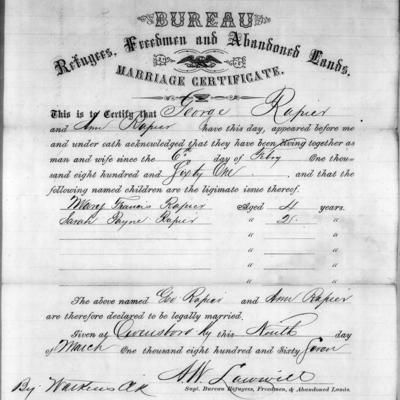 BUREAU
Refugees, Freedmen and Abandoned Lands.
MARRIAGE CERTIFICATE.
This is to Certify that George Rapier
and Ann Rapier have this day, appeared before me
and under oath acknowledged that they have been living together as
man and wife since the 6th day of Feby One thou-
sand eight hundred and Sixty One, and that the
following named children are the ligimate issue thereof.
Mary Francis Rapier Aged 4 years.
Sarah Payne Rapier " 2 "
" "
" "
" "
The above named Geo Rapier and Ann Rapier
are therefore declared to be legally married.
Given at Owensboro Ky this Ninth day
of March One thousand eight hundred and Sixty Seven
By Watkins Clk A. W.
Supt. Bureau Refugees, Freedmen, & Abandoned Lands.